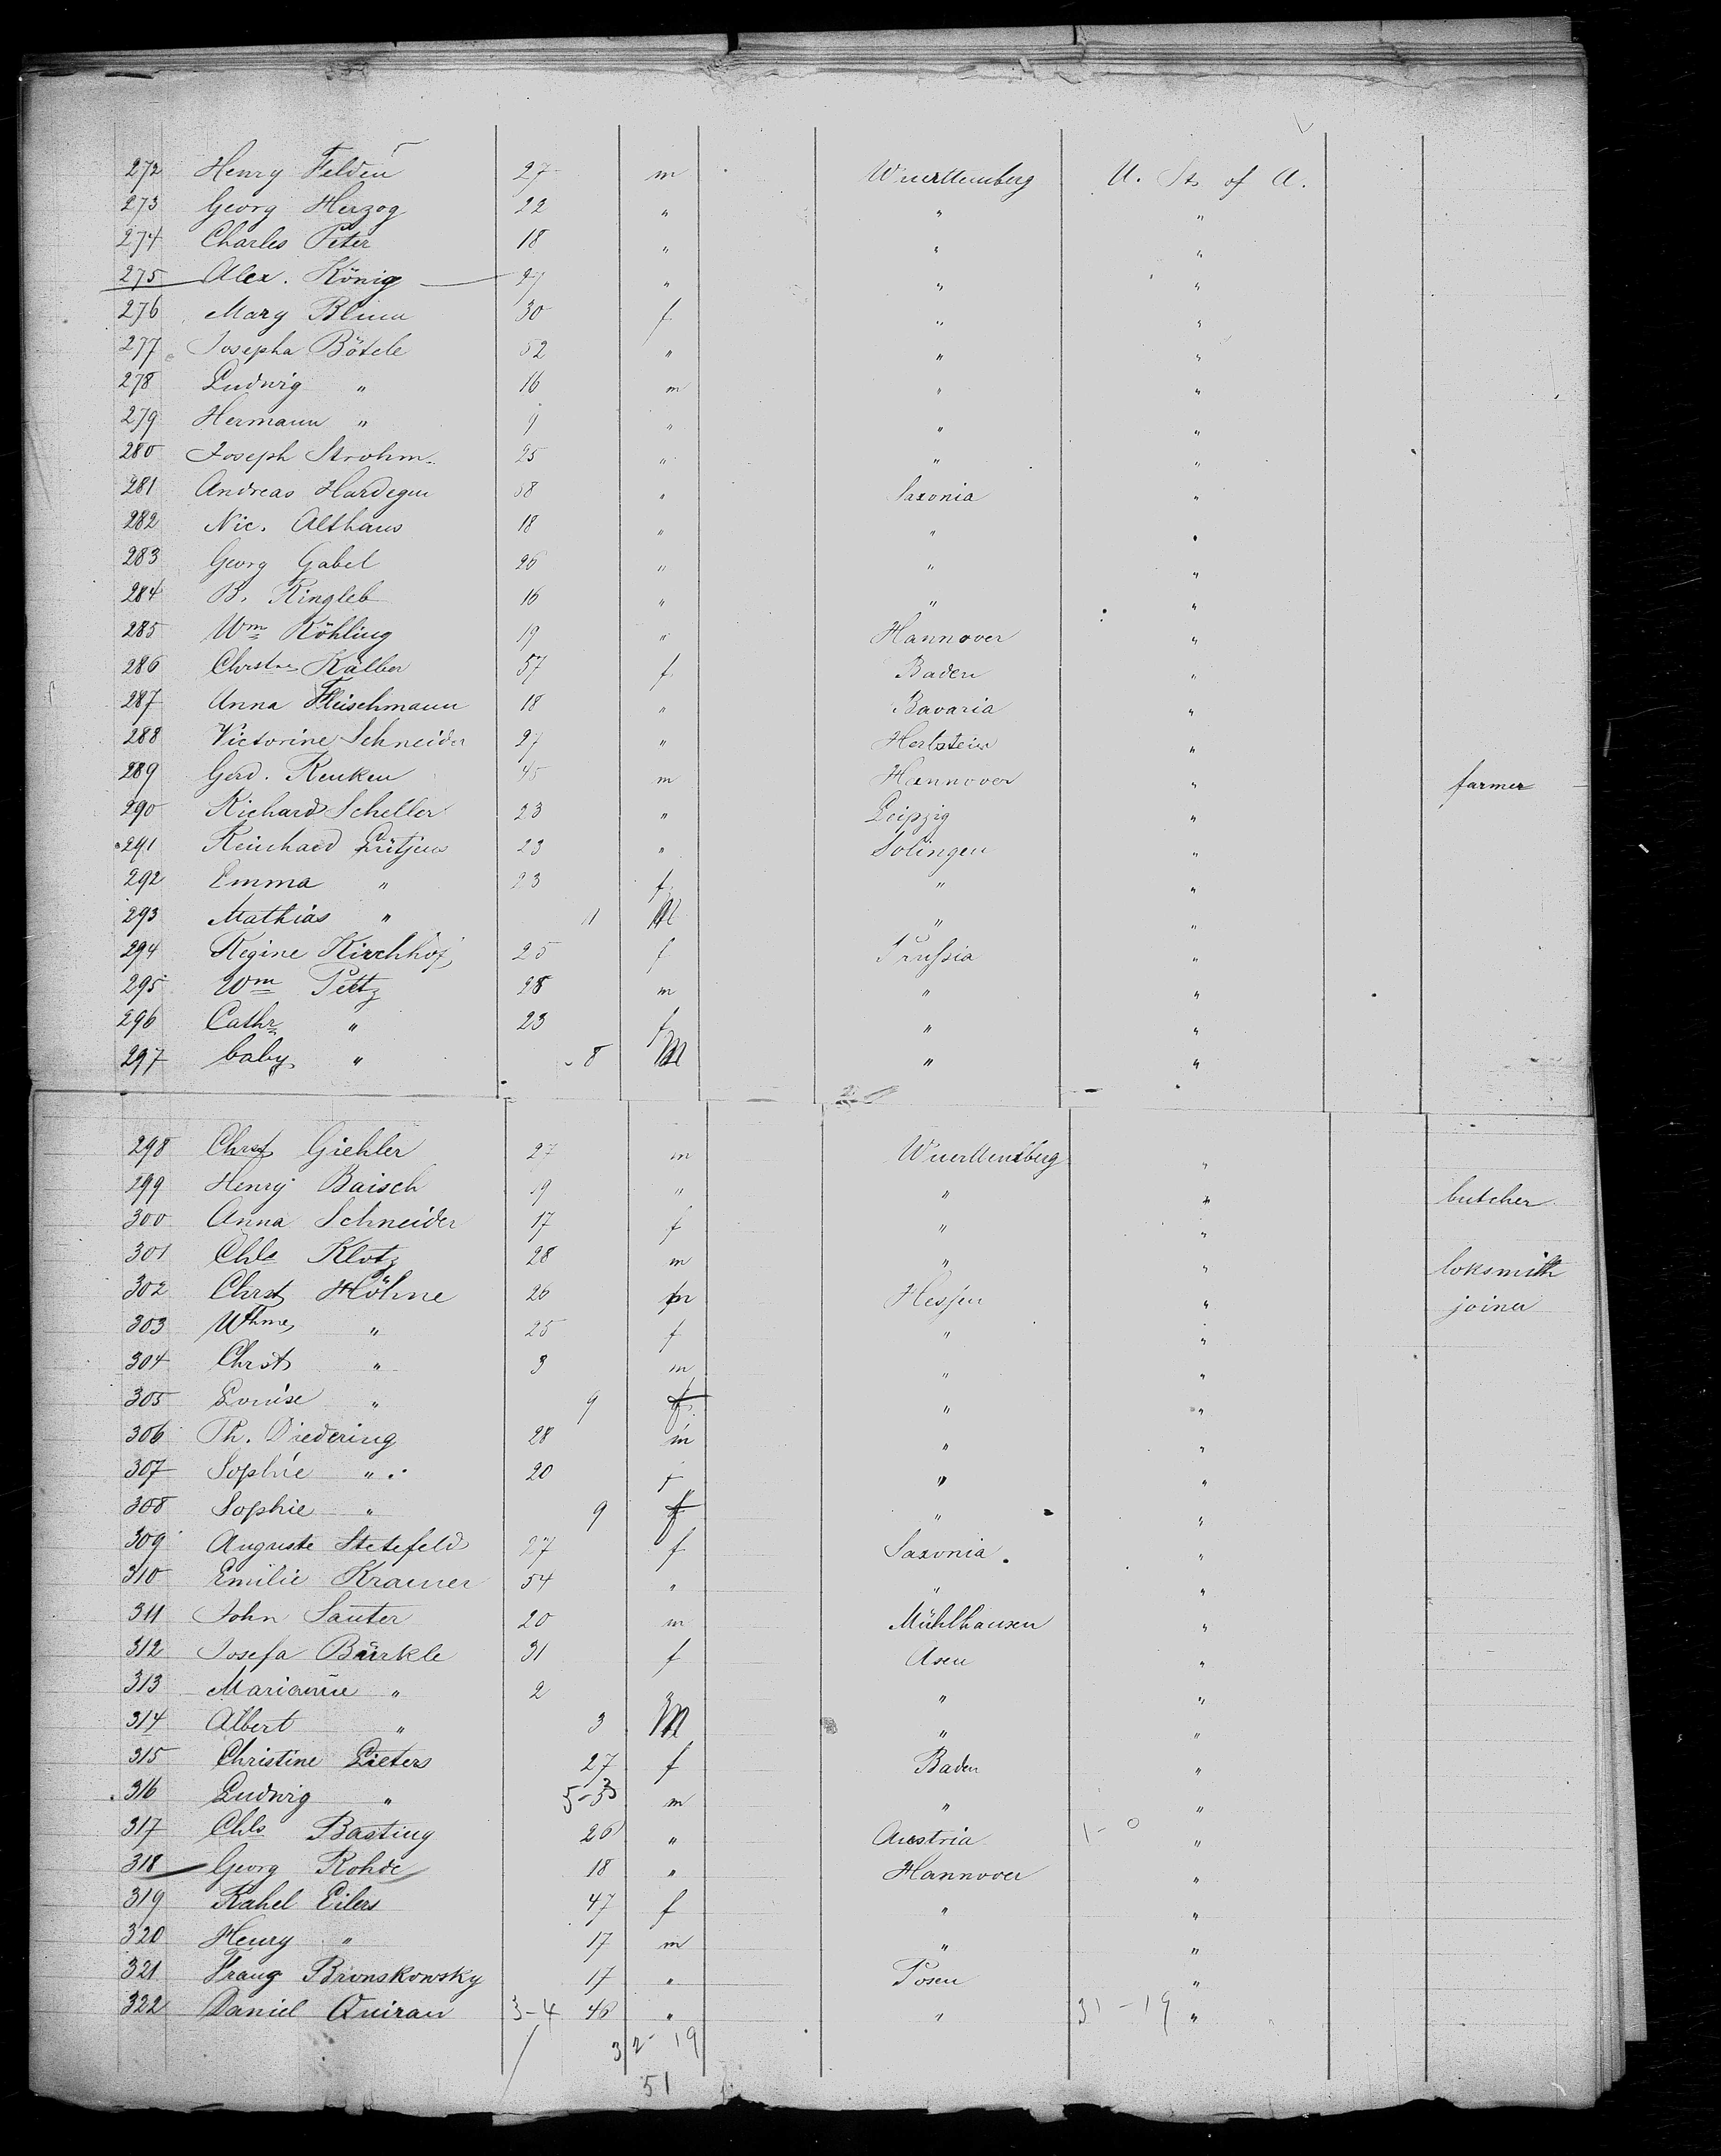 272 Henry Felden 27 m Wuerttemberg U. Sts of A.
273 Georg Herzog 22 " " "
274 Charles Peter 18 " " "
275 Alex. König 27 " " "
276 Mary Blum 30 f " "
277 Josepha Bötele 52 " " "
278 Ludwig " 16 m " "
279 Hermann " 9 " " "
280 Joseph Strohm 25 " " "
281 Andreas Hardegen 58 " Saxonia "
282 Nic. Althaus 18 " " "
283 Georg Gabel 26 " " "
284 B. Ringleb 16 " " "
285 Wm Röhling 19 " Hannover "
286 Christne Kälber 57 f Baden "
287 Anna Fleischmann 18 " Bavaria "
288 Victorine Schneider 27 " "
289 Gerd. Renken 45 m Hannover " farmer
290 Richard Scheller 23 " Leipzig "
291 Reinhard Lütjens 23 " Solingen "
292 Emma " 23 f " "
293 Mathias " 11 M " "
294 Regine Kirchhof 25 f Prussia "
295 Wm Peltz 28 m " "
296 Cathr " 23 f " "
297 baby " 8 M " "
298 Christ Giehler 27 m Wuerttemberg "
299 Henry Baisch 19 " " " butcher
300 Anna Schneider 17 f " "
301 Chls Klotz 28 m " " loksmith
302 Christ Höhne 26 m Hessen " joiner
303 Whme " 25 f " "
304 Christ " 3 m " "
305 Louise " 9 f " "
306 Th. Diedering 28 m " "
307 Sophie " 20 f " "
308 Sophie " 9 f " "
309 Auguste Stetefeld 27 f Saxonia "
310 Emilie Kramer 54 " " "
311 John Sauter 20 m Mühlhausen "
312 Josefa Bürkle 31 f Asen "
313 Marianne " 2 " " "
314 Albert " 3 M " "
315 Christine Lieters 27 f Baden "
316 Ludwig " 5-3 m " "
317 Chls Basting 26 " Austria 1-0 "
318 Georg Rohde 18 " Hannover "
319 Rahel Eilers 47 f " "
320 Henry " 17 m " "
321 Franz Bronskowsky 17 " Posen "
322 Daniel Quiran 3-4 46 " " 31-19 "
32-19
51